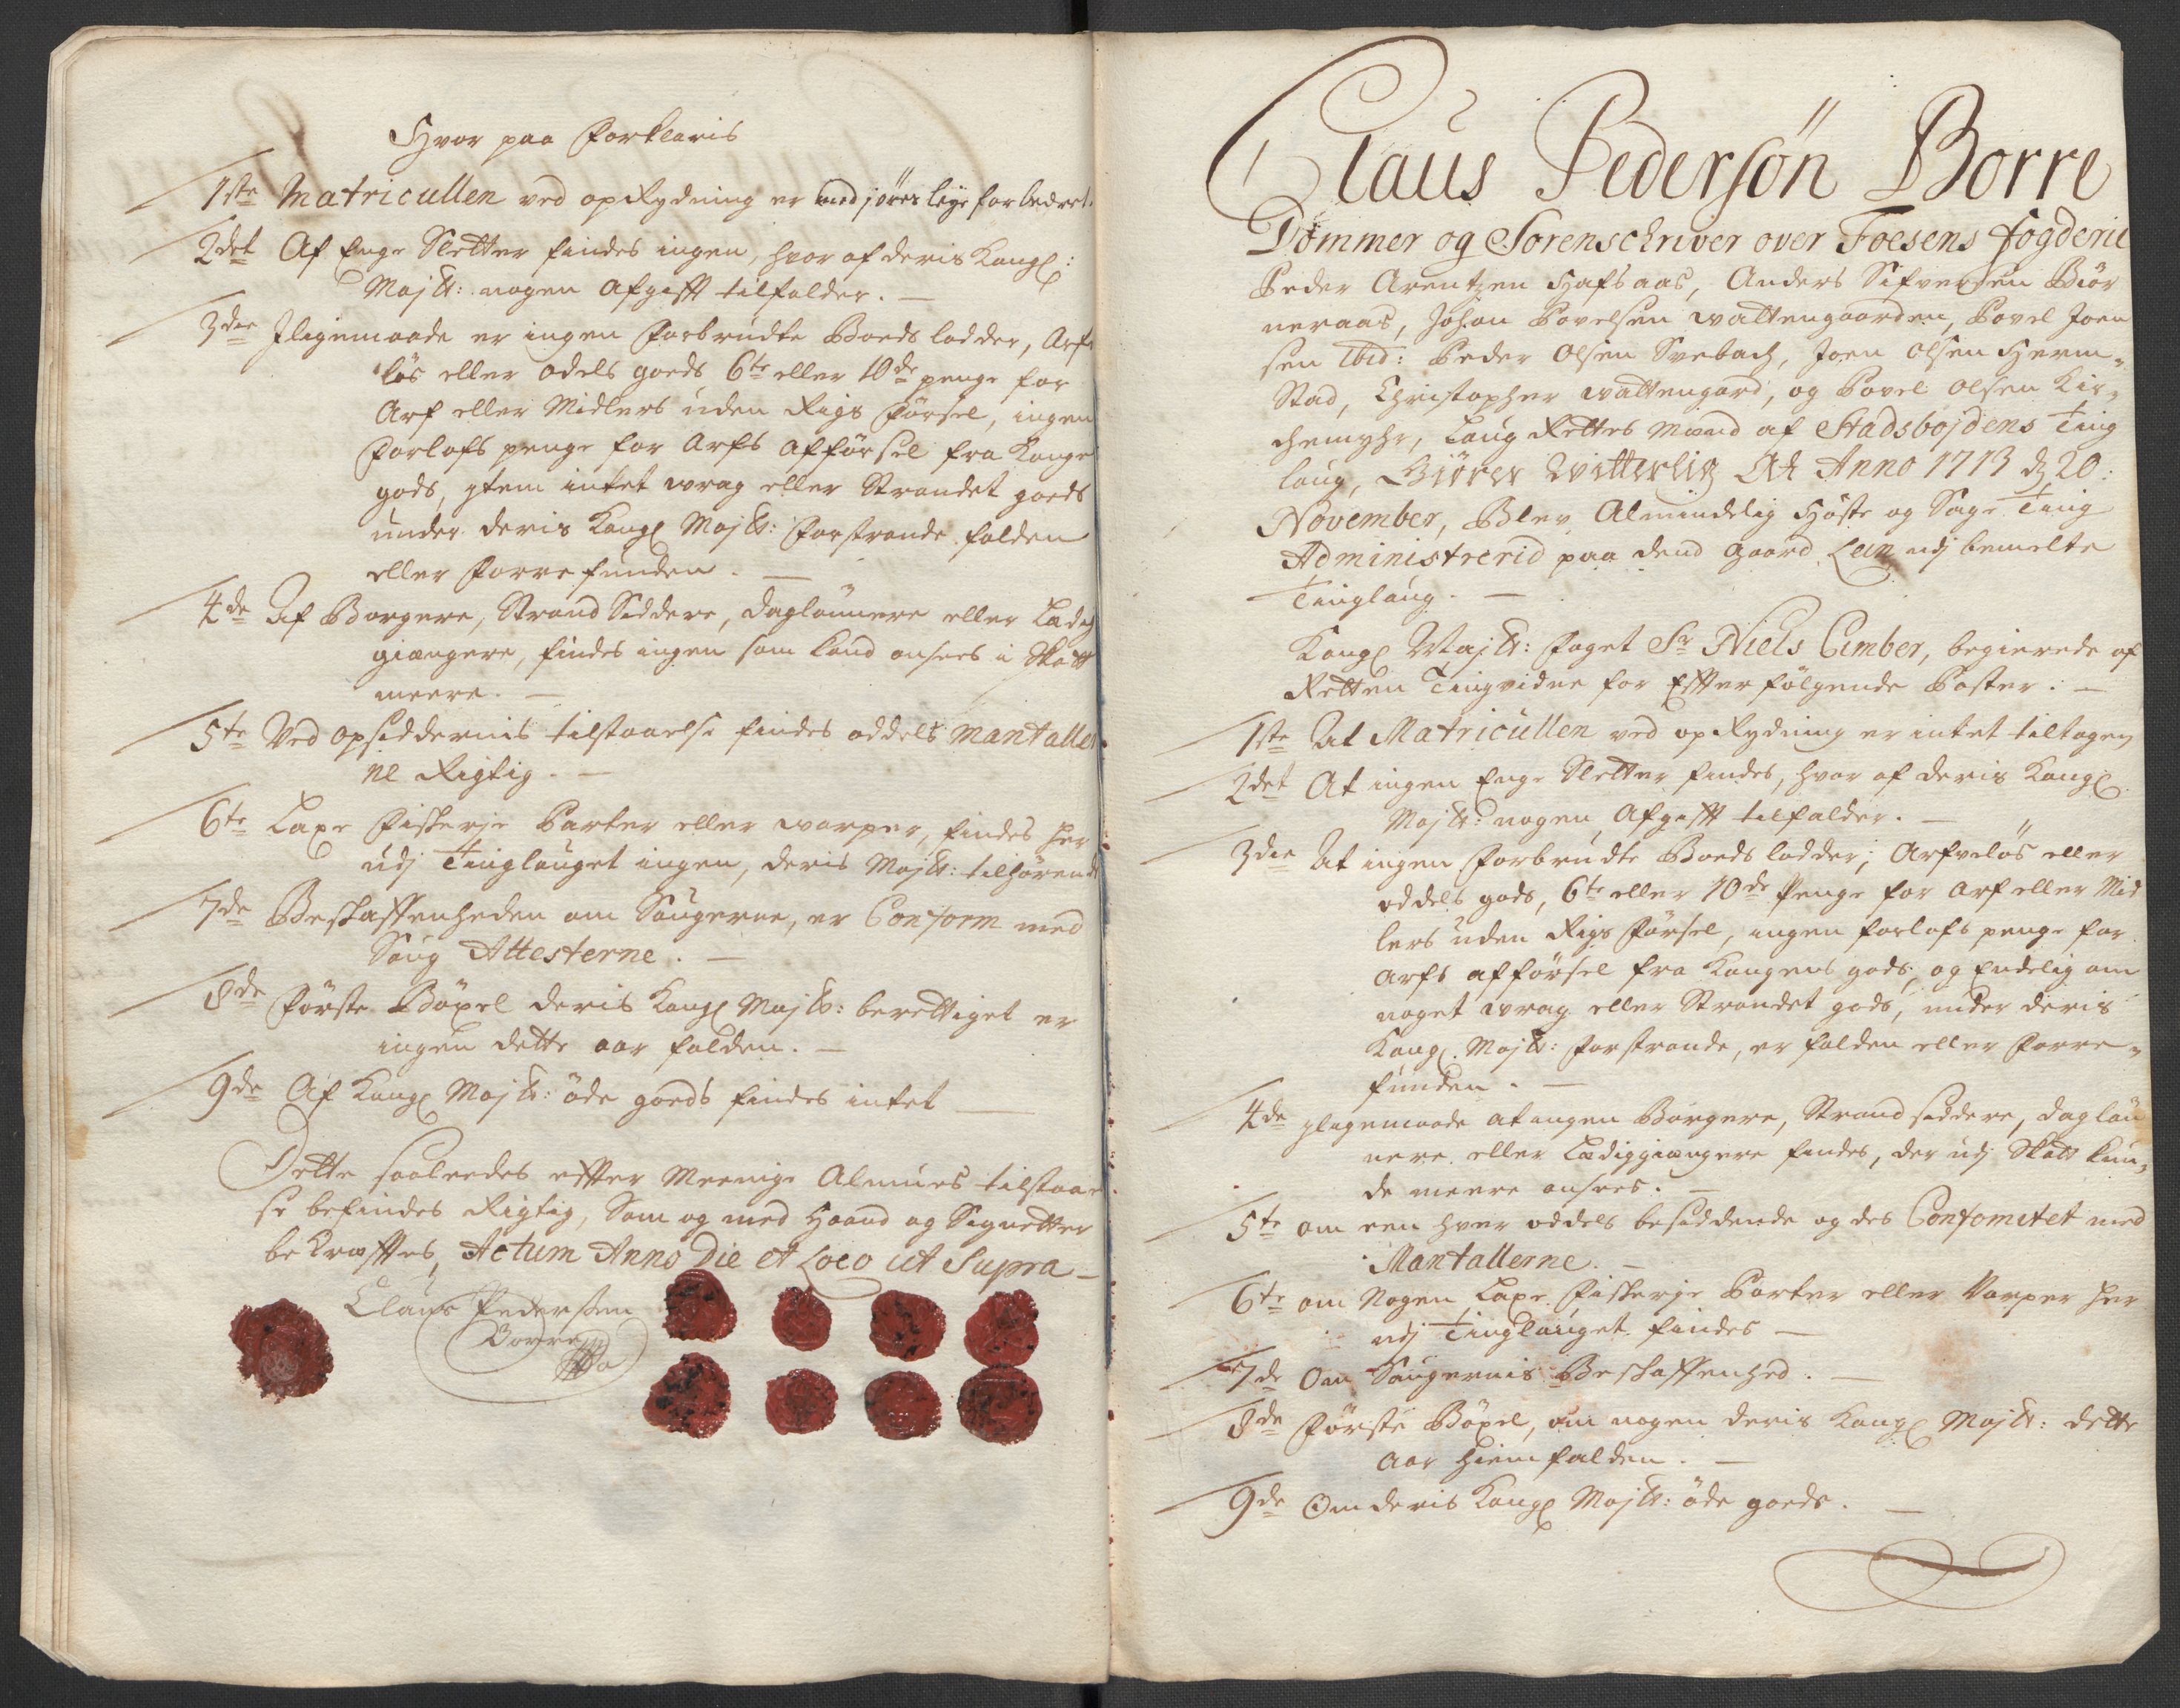 Hvor paa Forklaris
1ste Matricullen ved opRydning er med jores leye forbedret.
2det Af Enge Sletter findes ingen, hvor af deris Kongl:
Majtt: nogen Afgifft tilfalder. —
3die Jligemaade er ingen Forbrudte Boeds lodder, Arfve
løs eller odels goeds, 6te eller 10de penge for
Arf eller Midlers uden Rigs Førsel, ingen
Forlofs penge for Arfs afførsel fra Konge
gods, jtem intet wrag eller Strandet goeds
under deris Kongl Majtt: Forstrande falden
eller Forrefunden. —
4de Af Borgere, Strand Siddere, daglønnere eller Ledig
giængere, findes ingen som kand ansees i Skatt
meere. —
5te Ved opsiddernis tilstaaelse findes oddels Mantaller
ne Rigtig. —
6te Laxe Fiskerje Parter eller warper, findes her
udj Tinglauget ingen, deris Majtt: tilhørende
7de Beskaffenheden om Saugerne, er Conform med
Saug Attesterne. —
8de Første Bøxel deris Kongl Majtt: berettiget er
ingen dette aar falden. —
9de Af Kongl Majtt: øde goeds findes intet —
Dette saaleedes effter Meenige Almues tilstaael
se befindes Rigtig, Som og med Haand og Signetter
bekræfftes, Actum Anno Die et Loco ut Supra —
Claus Pedersen
Borre
Claus Pedersøn Borre
Dommer og Sorenschriver over Foesens Fogderie
Peder Arentzen Hafsaas, Anders Sifversen Biør
neraas, Johan Povelsen wattengaarden, Povel Joen
sen Ibid: Peder Olsen Svebach, Joen Olsen Herm-
Stad, Christopher wattengard, og Povel Olsen Kir-
chemyhr, Laug Rettes Mænd af Stadsbojdens Ting
laug, Giører Witterlig At Anno 1713 d 20:
November, Blev Almindelig Høste og Sage Ting
Administrerid paa dend gaard Lein udj bemelte
Tinglaug. —
Kongl Majtt: Foget Sr Niels Cimber, begierede af
Retten Tingvidne for Effterfølgende Poster: —
1ste At Matricullen ved opRydning er intet tiltagen
2det At ingen Enge Sletter findes, hvor af deris Kongl.
Majtt: nogen Afgifft tilfalder. —
3die At ingen Forbrudte Boeds lodder, Arfveløs eller
oddels gods, 6te eller 10de Penge for Arf eller Mid
lers uden Rigs Førsel, ingen forlofs penge for
Arfs afførsel fra Kongens gods, og Endelig om
noget wrag eller Strandet gods, under deris
Kongl. Majtt: Forstrande, er falden eller Forre-
funden. —
4de jligemaade at ingen Borgere, Strand siddere, dagløn
nere eller Lediggiængere findes, der udj Skatt kun-
de meere ansees. —
5te om een hver oddels besiddende og des Confomitet med
Mantallerne. —
6te om Nogen Laxe Fiskerje Parter eller Varper her
udj Tinglauget findes —
7de Om Saugernis Beskaffenhed. —
8de Første Bøxel, om nogen deris Kongl Majtt: dette
Aar hiemfalden. —
9de Om deris Kongl Majtt: øde goeds. —